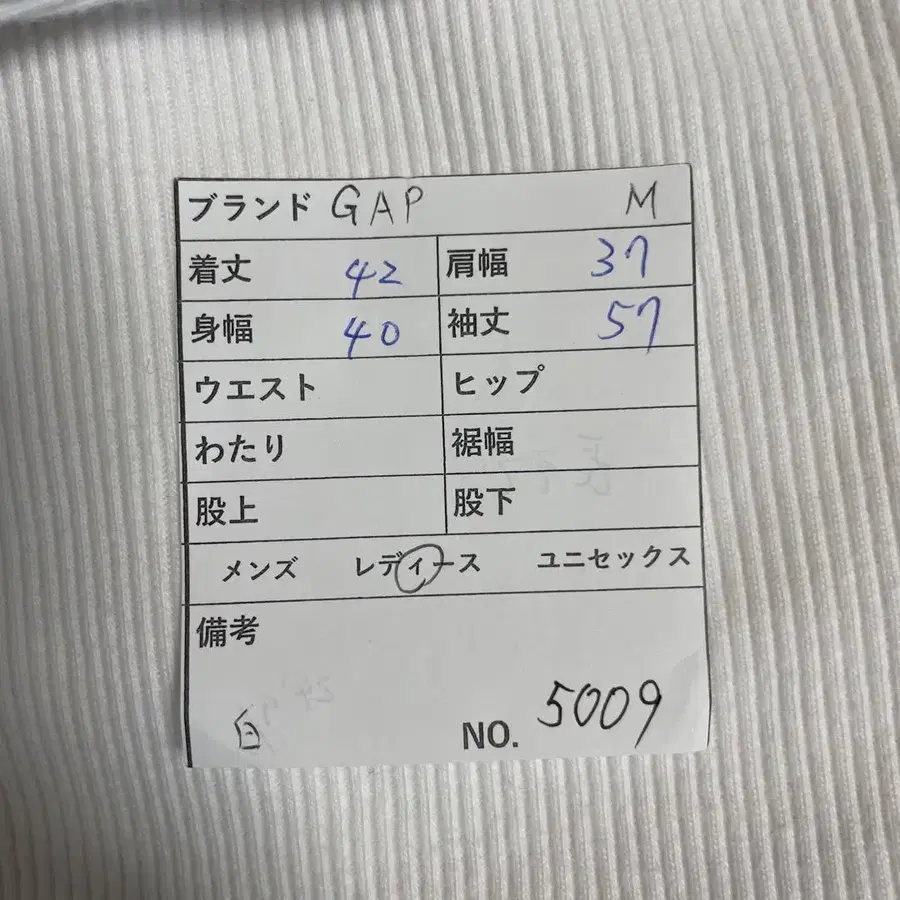 ブランド GAP M
着丈 42 肩幅 37
身幅 40 袖丈 57
ウエスト ヒップ
わたり 裾幅
股上 股下
メンズ レディース ユニセックス
備考
白 NO. 5009